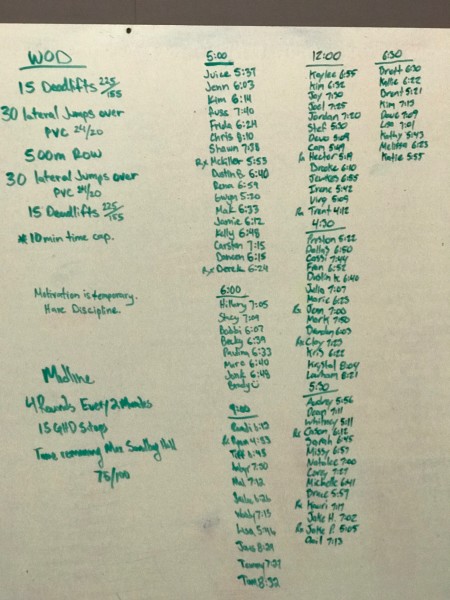 WOD
15 Deadlifts 225/155
30 lateral Jumps over
PVC 24/20
500m Row
30 lateral Jumps over
PVC 24/20
15 Deadlifts 225/155
*10 min time cap.
Motivation is temporary.
Have Discipline.
Midline
4 Rounds Every 2 Minutes
15 GHD Situps
Time remaining Max
75/100
5:00
Juice 5:37
Jenn 6:03
Kim 6:14
7:40
Frida 6:24
Chris 8:10
Shawn 7:38
Rx 5:53
Dustin B 6:40
Renn 6:59
Gwyn 5:30
Mak 6:33
Jamie 6:12
Kelly 6:48
Carsten 7:15
Doneen 6:15
Rx Derek 6:24
6:00
Hillary 7:05
Stacy 7:09
Bobbi 6:07
Becky 6:39
Paulina 6:33
Marc 6:40
6:48
Brody
9:00
Rx Ryan 4:53
Tiff 6:45
7:12
Wendy 7:13
Lisa
8:29
Tommy 7:27
Tom 8:32
12:00
Kaylee 6:55
Kim 6:32
Jay 7:30
Joel 7:25
Jordan 7:20
Stef 5:30
Deve 5:09
Cam 5:49
Rx Hector 5:19
Brooke 6:10
6:55
Irene 5:42
5:09
Rx Trent 4:12
4:30
Preston 5:22
Dallas 6:50
Cassi 7:44
Fran 6:52
Dustin K 6:40
Julia 7:07
Marie 6:25
Rx Jenn 7:00
Mark 7:50
6:03
Rx Clay 7:23
Kris 6:22
Krystal 8:04
8:21
5:30
Audrey 5:56
Dean 7:11
Whitney 5:11
Rx 6:12
Sarah 6:45
Missy 6:57
Natalie 7:00
Corey 7:27
Michelle 6:41
5:57
Rx 7:17
Jake H. 7:02
Rx Jake P. 5:05
Gail 7:13
6:30
Brett 6:30
Katie 6:22
Brent 5:21
Kim 7:13
Dave 7:09
Lisa 7:01
Kathy 5:43
Melissa 6:23
Katie 5:55